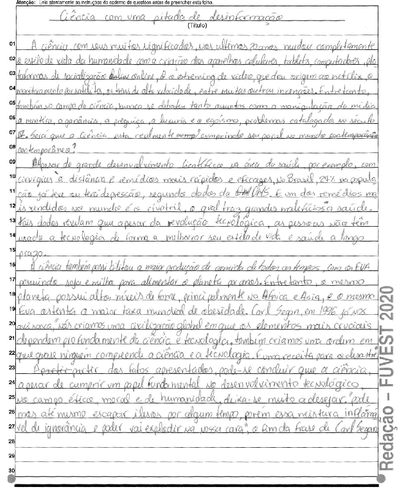 Atenção: Leia atentamente as instruções do caderno de questões antes de preencher esta folha.
Ciência com uma pitada de desinformação
(Título)
01 A ciência, com seus muitos significados, nos últimos anos mudou completamente
02 o estilo de vida da humanidade com a criação dos aparelhos celulares, tablets, computadores,
03 de socialização online, e o streaming de vídeo, que deu origem ao netflix, o
04 de alta velocidade, entre muitas outras invenções. Entretanto,
05 também no campo da ciência, nunca se debateu tanto assuntos como a manipulação da mídia,
06 a mentira, a ganância, a preguiça, a luxúria e o egoísmo, problemas
07 Será que a ciência está realmente cumprindo seu papel no mundo
08 contemporâneo?
09 Apesar do grande desenvolvimento científico na área da saúde, por exemplo, com
10 cirurgias à distância e remédios mais rápidos e eficazes, no Brasil,
11 ção só teve ou terá depressão, segundo dados da OMS. E um dos remédios ma
12 is vendidos no mundo é o rivotril, o qual traz grandes malefícios a saúde.
13 Tais dados revelam que apesar da revolução tecnológica, as pessoas não têm
14 usado a tecnologia de forma a melhorar seu estilo de vida e saúde a longo
15 prazo.
16 A ciência também possibilitou a maior produção de comida de todos os tempos, com os EUA
17 produzindo soja e milho para alimentar o planeta anos. Entretanto, o mesmo
18 planeta possui altos níveis de fome, principalmente na África e Ásia, e o mesmo
19 EUA ostenta a maior taxa mundial de obesidade. Carl Sagan, em 1996, já nos
20 avisava, "nós criamos uma civilização global em que os elementos mais cruciais
21 dependem profundamente da ciência e tecnologia, também criamos uma ordem em
22 que quase ninguém compreende a ciência e a tecnologia. É uma receita para o desastre".
23 A partir dos fatos apresentados, pode-se concluir que a ciência,
24 apesar de cumprir um papel fundamental no desenvolvimento tecnológico,
25 no campo ético, moral e de humanidade, deixa-se muito a desejar, "pode
26 mos até mesmo escapar ilesos por algum tempo, porém essa mistura inflamá
27 vel de ignorância e poder vai explodir na nossa cara", é o fim da frase de Carl Sagan.
28
29
30
Redação – FUVEST 2020